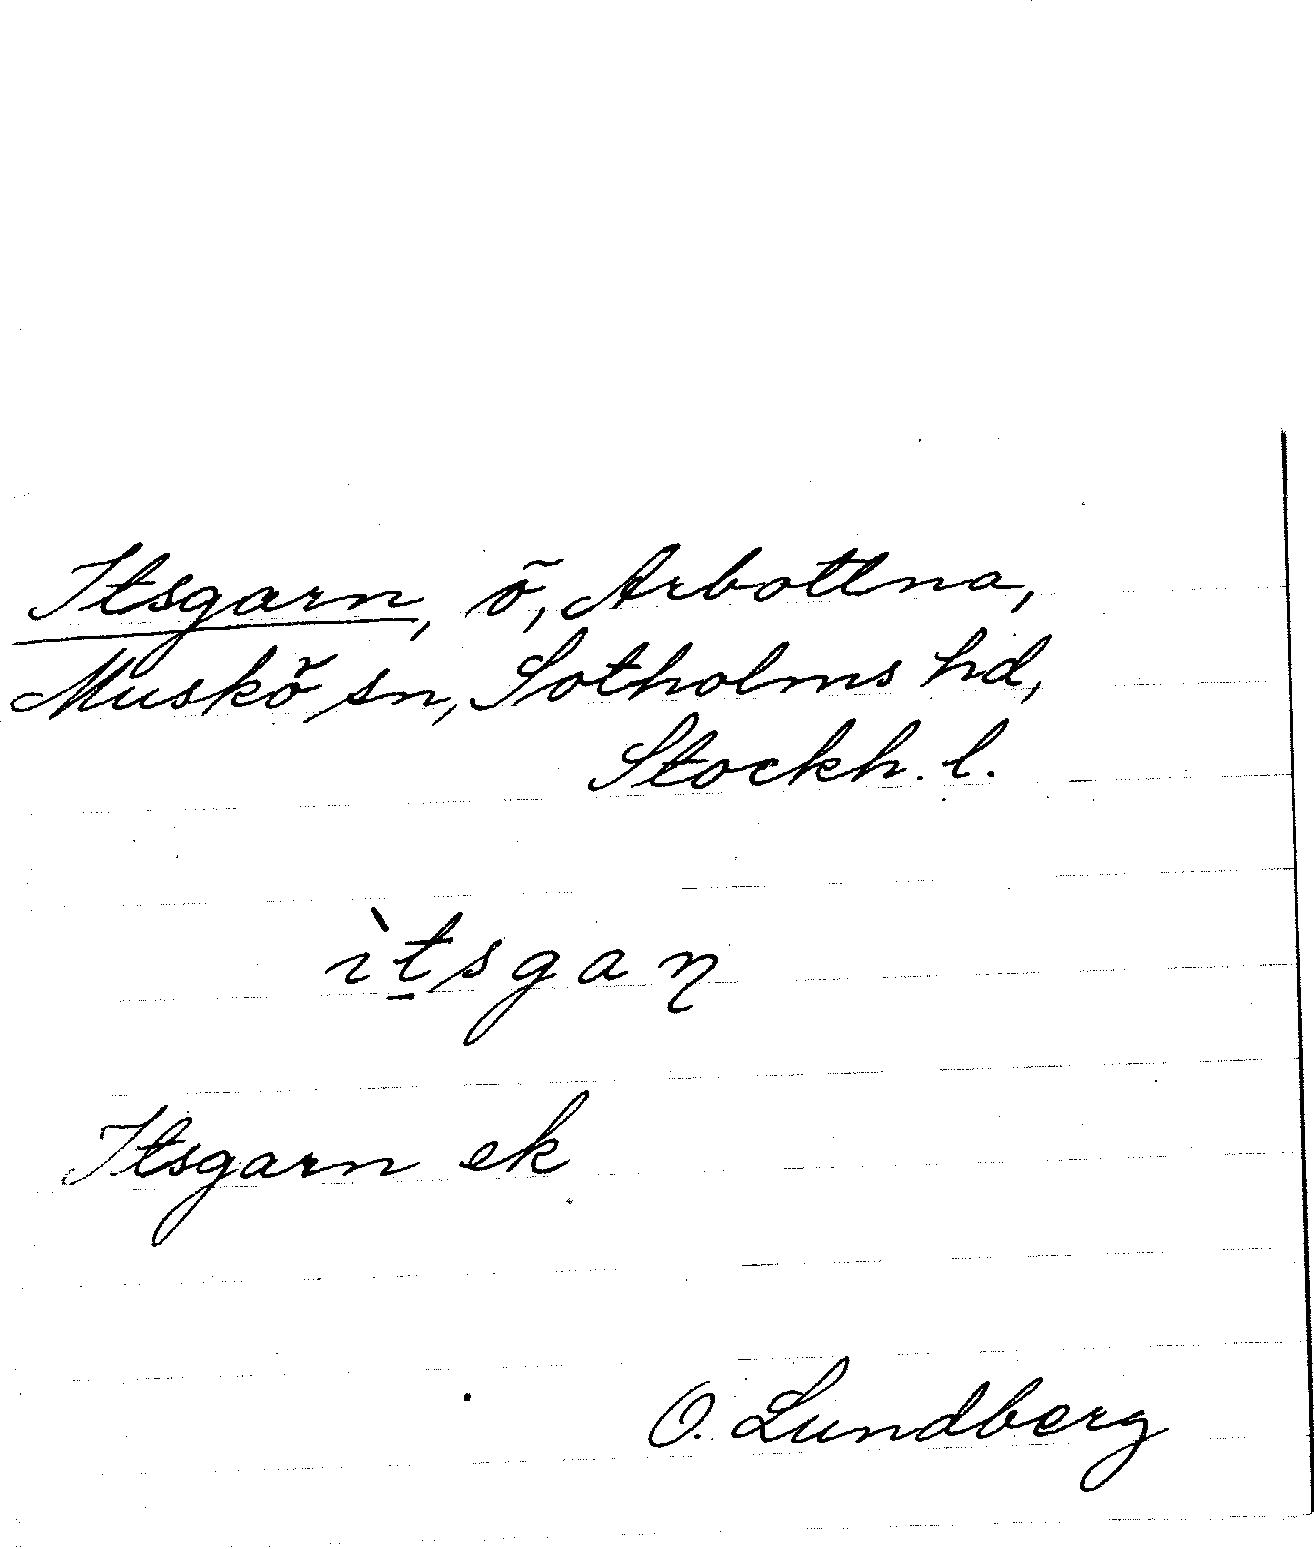 Itsgarn, ö, Arbottna,
Muskö sn, Sotholms hd,
Stockh. l.
ìt̠sgaɳ
Itsgarn ek
O. Lundberg